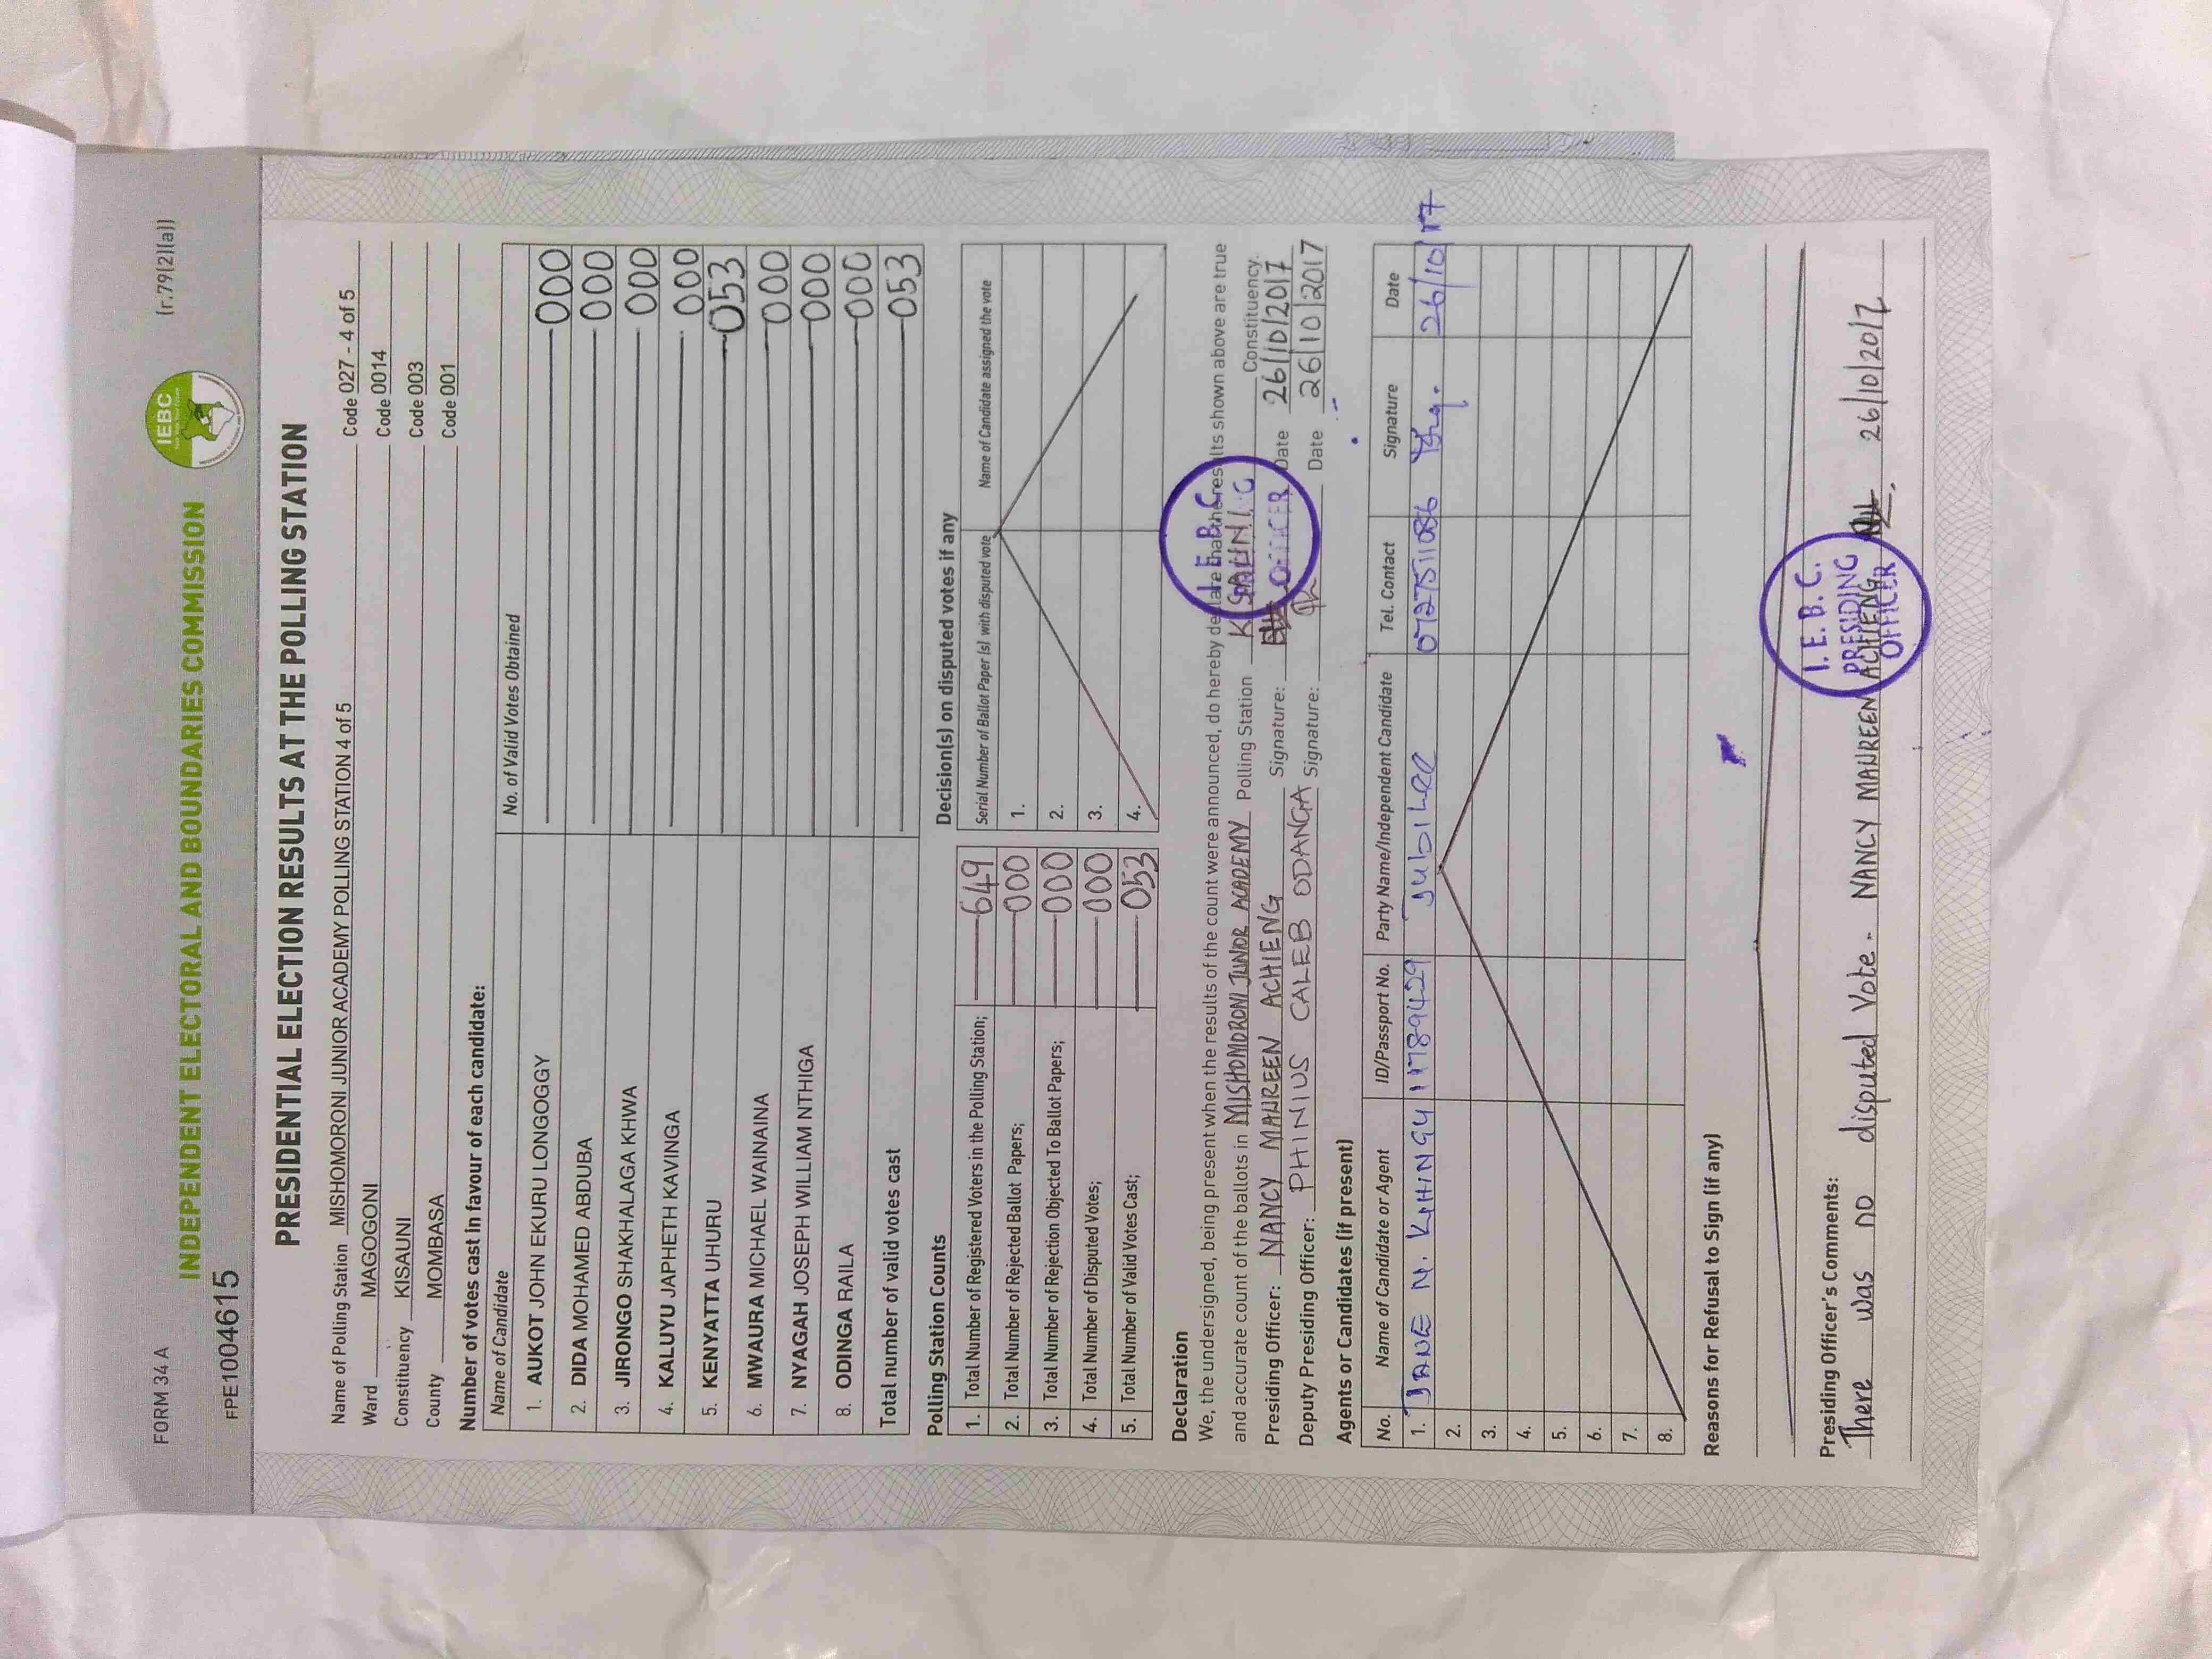 FORM 34 A
(r.79(2)(a))
IEBC
INDEPENDENT ELECTORAL AND BOUNDARIES COMMISSION
FPE1004615
PRESIDENTIAL ELECTION RESULTS AT THE POLLING STATION
Name of Polling Station MISHOMORONI JUNIOR ACADEMY POLLING STATION 4 of 5 Code 027 - 4 of 5
Ward MAGOGONI Code 0014
Constituency KISAUNI Code 003
County MOMBASA Code 001
Number of votes cast in favour of each candidate:
Name of Candidate No. of Valid Votes Obtained
1. AUKOT JOHN EKURU LONGOGGY 000
2. DIDA MOHAMED ABDUBA 000
3. JIRONGO SHAKHALAGA KHWA 000
4. KALUYU JAPHETH KAVINGA 000
5. KENYATTA UHURU 053
6. MWAURA MICHAEL WAINAINA 000
7. NYAGAH JOSEPH WILLIAM NTHIGA 000
8. ODINGA RAILA 000
Total number of valid votes cast 053
Polling Station Counts
1. Total Number of Registered Voters in the Polling Station; 649
2. Total Number of Rejected Ballot Papers; 000
3. Total Number of Rejection Objected To Ballot Papers; 000
4. Total Number of Disputed Votes; 000
5. Total Number of Valid Votes Cast; 053
Decision(s) on disputed votes if any
Serial Number of Ballot Paper (s) with disputed vote Name of Candidate assigned the vote
1.
2.
3.
4.
Declaration
We, the undersigned, being present when the results of the count were announced, do hereby declare that the results shown above are true
and accurate count of the ballots in MISHOMORONI JUNIOR ACADEMY Polling Station KISAUNI Constituency.
Presiding Officer: NANCY MAUREEN ACHIENG Signature: Date 26/10/2017
Deputy Presiding Officer: PHINIUS CALEB ODANGA Signature: Date 26/10/2017
I.E.B.C.
OFFICER
Agents or Candidates (if present)
No. Name of Candidate or Agent ID/Passport No. Party Name/Independent Candidate Tel. Contact Signature Date
1. JANE N. 11789429 Jubilee 0727511086 26/10/17
2.
3.
4.
5.
6.
7.
8.
Reasons for Refusal to Sign (if any)
Presiding Officer's Comments:
There was no disputed Vote. NANCY MAUREEN ACHIENG 26/10/2017
I.E.B.C.
PRESIDING
OFFICER